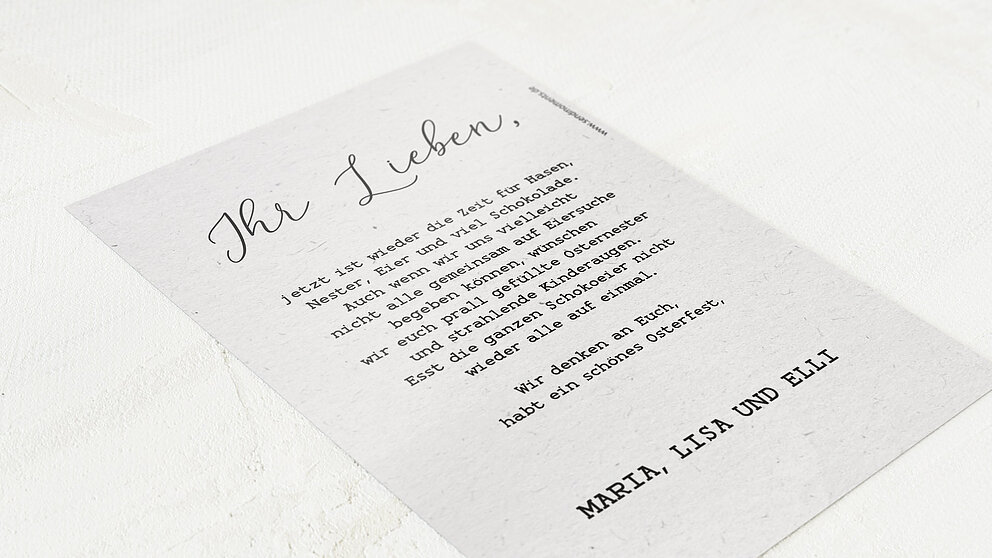 Ihr Lieben,
jetzt ist wieder die Zeit für Hasen,
Nester, Eier und viel Schokolade.
Auch wenn wir uns vielleicht
nicht alle gemeinsam auf Eiersuche
begeben können, wünschen
wir euch prall gefüllte Osternester
und strahlende Kinderaugen.
Esst die ganzen Schokoeier nicht
wieder alle auf einmal.
Wir denken an Euch,
habt ein schönes Osterfest,
MARIA, LISA UND ELLI
www.sendmoments.de